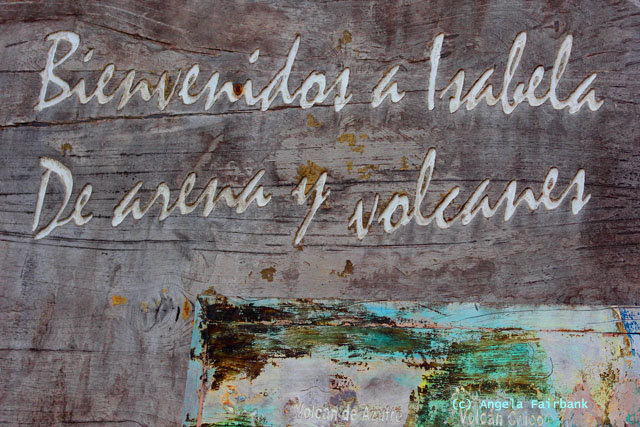 Bienvenidos a Isabela
De arena y volcanes
Volcán de Azufre
Volcán Chico
(c) Angela Fairbank